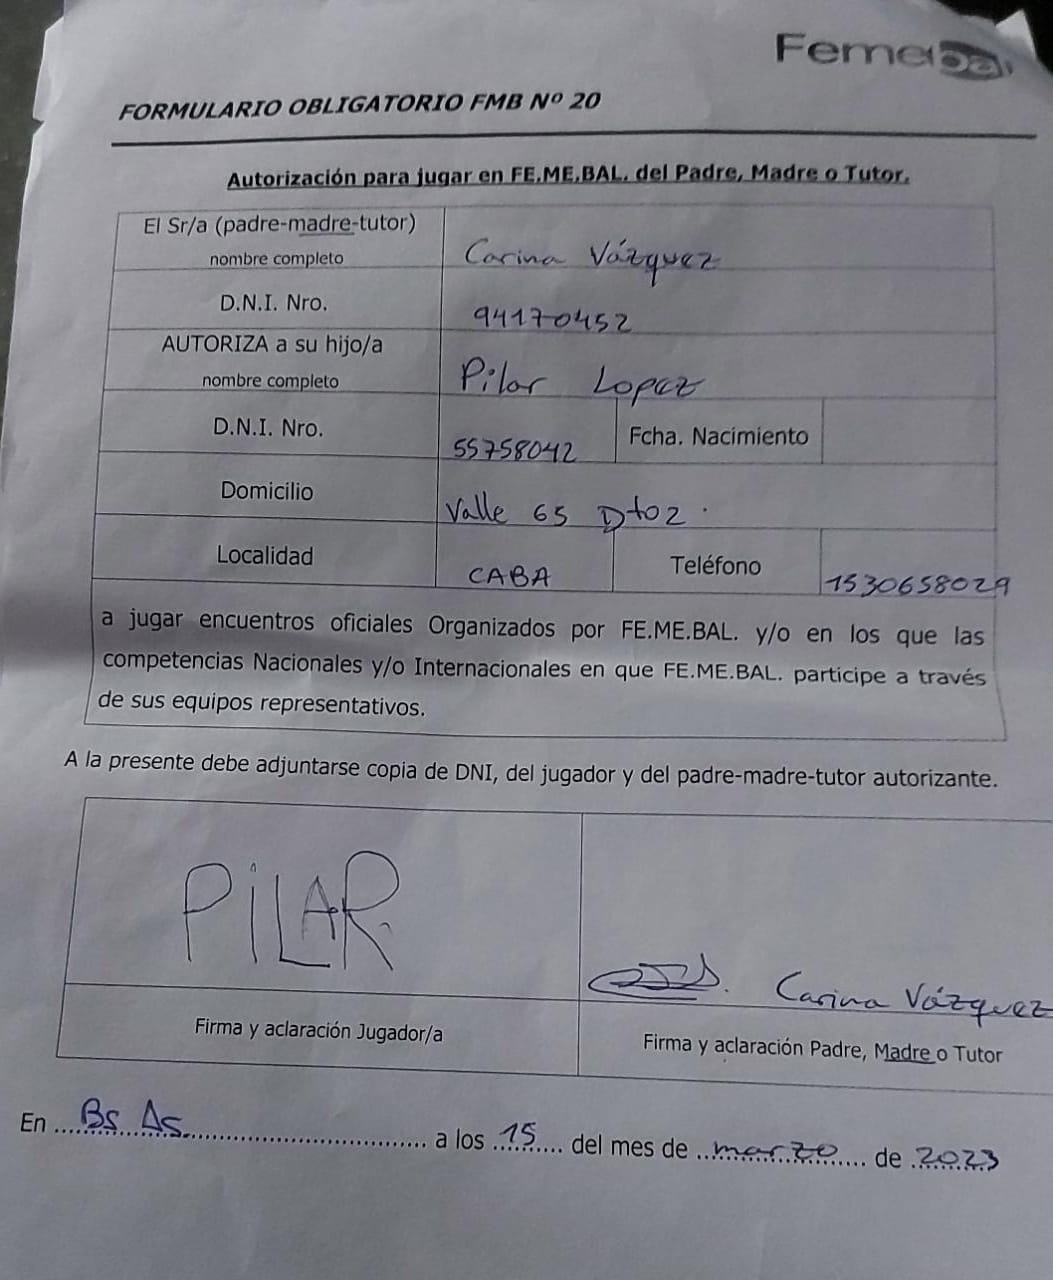 Femebal
FORMULARIO OBLIGATORIO FMB Nº 20
Autorización para jugar en FE.ME.BAL. del Padre, Madre o Tutor.
El Sr/a (padre-madre-tutor)
nombre completo
Carina Vázquez
D.N.I. Nro.
94170452
AUTORIZA a su hijo/a
nombre completo
Pilar Lopez
D.N.I. Nro.
55758042
Fcha. Nacimiento
Domicilio
Valle 65 Dto2.
Localidad
CABA
Teléfono
1530658029
a jugar encuentros oficiales Organizados por FE.ME.BAL. y/o en los que las
competencias Nacionales y/o Internacionales en que FE.ME.BAL. participe a través
de sus equipos representativos.
A la presente debe adjuntarse copia de DNI, del jugador y del padre-madre-tutor autorizante.
PiLAR
Carina Vázquez
Firma y aclaración Jugador/a
Firma y aclaración Padre, Madre o Tutor
En Bs As a los 15 del mes de marzo de 2023